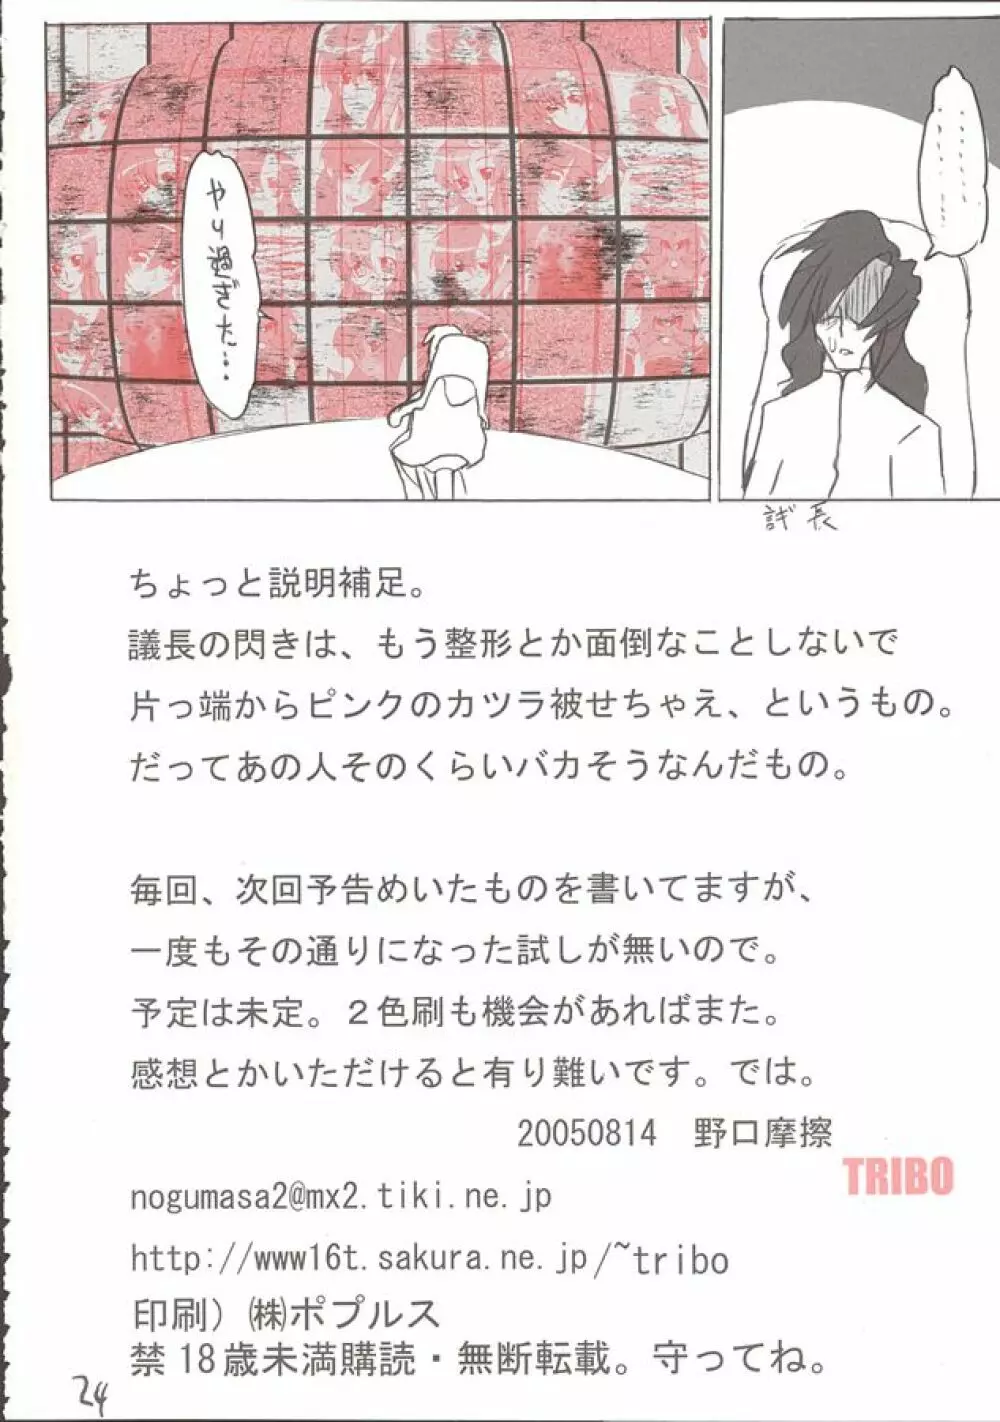 ………
………
やり過ぎた…
議長
ちょっと説明補足。
議長の閃きは、もう整形とか面倒なことしないで
片っ端からピンクのカツラ被せちゃえ、というもの。
だってあの人そのくらいバカそうなんだもの。
毎回、次回予告めいたものを書いてますが、
一度もその通りになった試しが無いので。
予定は未定。２色刷も機会があればまた。
感想とかいただけると有り難いです。では。
20050814　野口摩擦
TRIBO
nogumasa2@mx2.tiki.ne.jp
http://www16t.sakura.ne.jp/~tribo
印刷）㈱ポプルス
禁18歳未満購読・無断転載。守ってね。
24